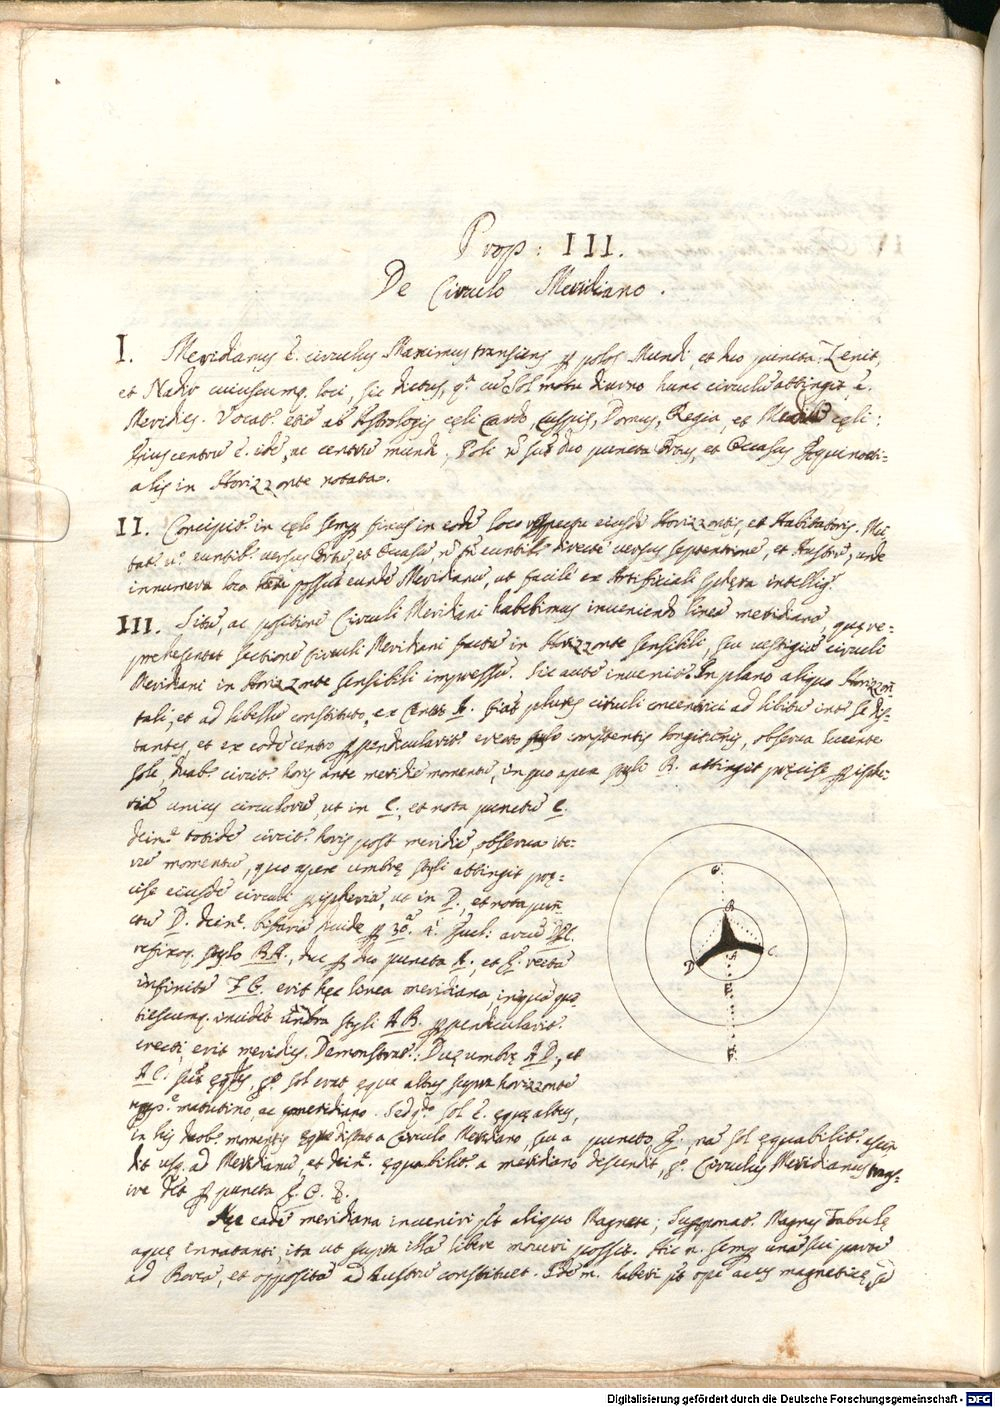 Prop: III.
De Circulo Meridiano.
I. Meridianus ē. circulus Maximus transiens ꝑ polos Mundi, et duo puncta Zenit,
et Nadir cuiuscumq. loci, sic dictus, qᵃ cū Sol motu diurno hunc circulū attingit, ē.
Meridies. Vocatʳ. etiā ab Astrologis cęli Cardo, Cuspis, Domus, Regia, et Mediū cęli:
Eius centrū ē. idē, ac centrū mundi, Poli ū sūt duo puncta Ortus, et Occasus Æquinocti=
alis in Horizzonte notata.
II. Concipitʳ in cęlo semꝑ fixus in eodē loco respectu eiusdē Horizzontis, et Habitatoris. Mu
tatʳ. ū. euntibˢ. versus Ortū, et Occasū ū euntibˢ directè versus septentrionē, et Austrū, unde
innumera loca possūt eundē Meridianū, ut facilè ex Artificiali sphęra intelligʳ.
III. Sitū, ac positionē Circuli Meridiani habebimus inveniendo lineā meridianā, quę re=
prehesentat sectionē circuli Meridiani factā in Horizzonte sensibili, seu vestigiū circuli
Meridiani in Horizzonte sensibili impressū. Sic autē invenitʳ. In plano aliquo Horizzon̄
tali, et ad libellū constituto, ex Centro A. fiāt plures circuli concentrici ad libitū intʳ se dis=
tantes, et ex eodē centro ꝑpendiculariter erecto stylo competentis longitudinis, observa lucente
sole, duabˢ circitʳ horis ante meridiē momentū, in quo apex styli B. attingit pręcisè ꝑiphe=
riā unius circulorū, ut in C., et nota punctū C.
deinᵉ totidē circitʳ. horis post meridiē, observa ite=
rū momentū, quo apex umbrę styli attingit pręc=
isè eiusdē circuli ꝑipheriā, ut in D., et nota pun̄
ctū D. deinᵉ. bifariā divide ꝑ 30ᵃ. 1ⁱ. Eucl: arcū DC.
refixoq. stylo BA., duc ꝑ duo puncta A., et E. rectā
infinitā FG. erit hęc linea meridiana, in quā quo
tiescumq. inciderit umbra styli AB. ꝑpendiculariter
erecti, erit meridies. Demonstratʳ: Duę umbrę AD, et
AC. sūt ęqˡes, gº. sol erat ęque altus supra horizzonte
tempᵉ. matutino, ac pomeridiano. Sed qᵈº sol ē. ęquè altus,
in his duobˢ. momentis ęque distat a Circulo Meridiano, seu a puncto E., nā sol ęquabiliter ascen
dit usq. ad Meridianū, et deinᵉ. ęquabiliter a meridiano descendit, gº. Circulus Meridianus trans=
ire dēt ꝑ puncta F. G. E.
Hęc eadē meridiana inveniri pōt aliquo Magnete; Supponatʳ. Magnes Tabulę
aquę innatanti, ita ut supra illā liberè moveri possit. Hic n. semꝑ unā sui partē
ad Borea, et oppositā ad Austrū constituet. Idē n. haberi pōt ope acus magneticę, sed
G
B
D
A
C.
E.
F.
Digitalisierung gefördert durch die Deutsche Forschungsgemeinschaft - DFG